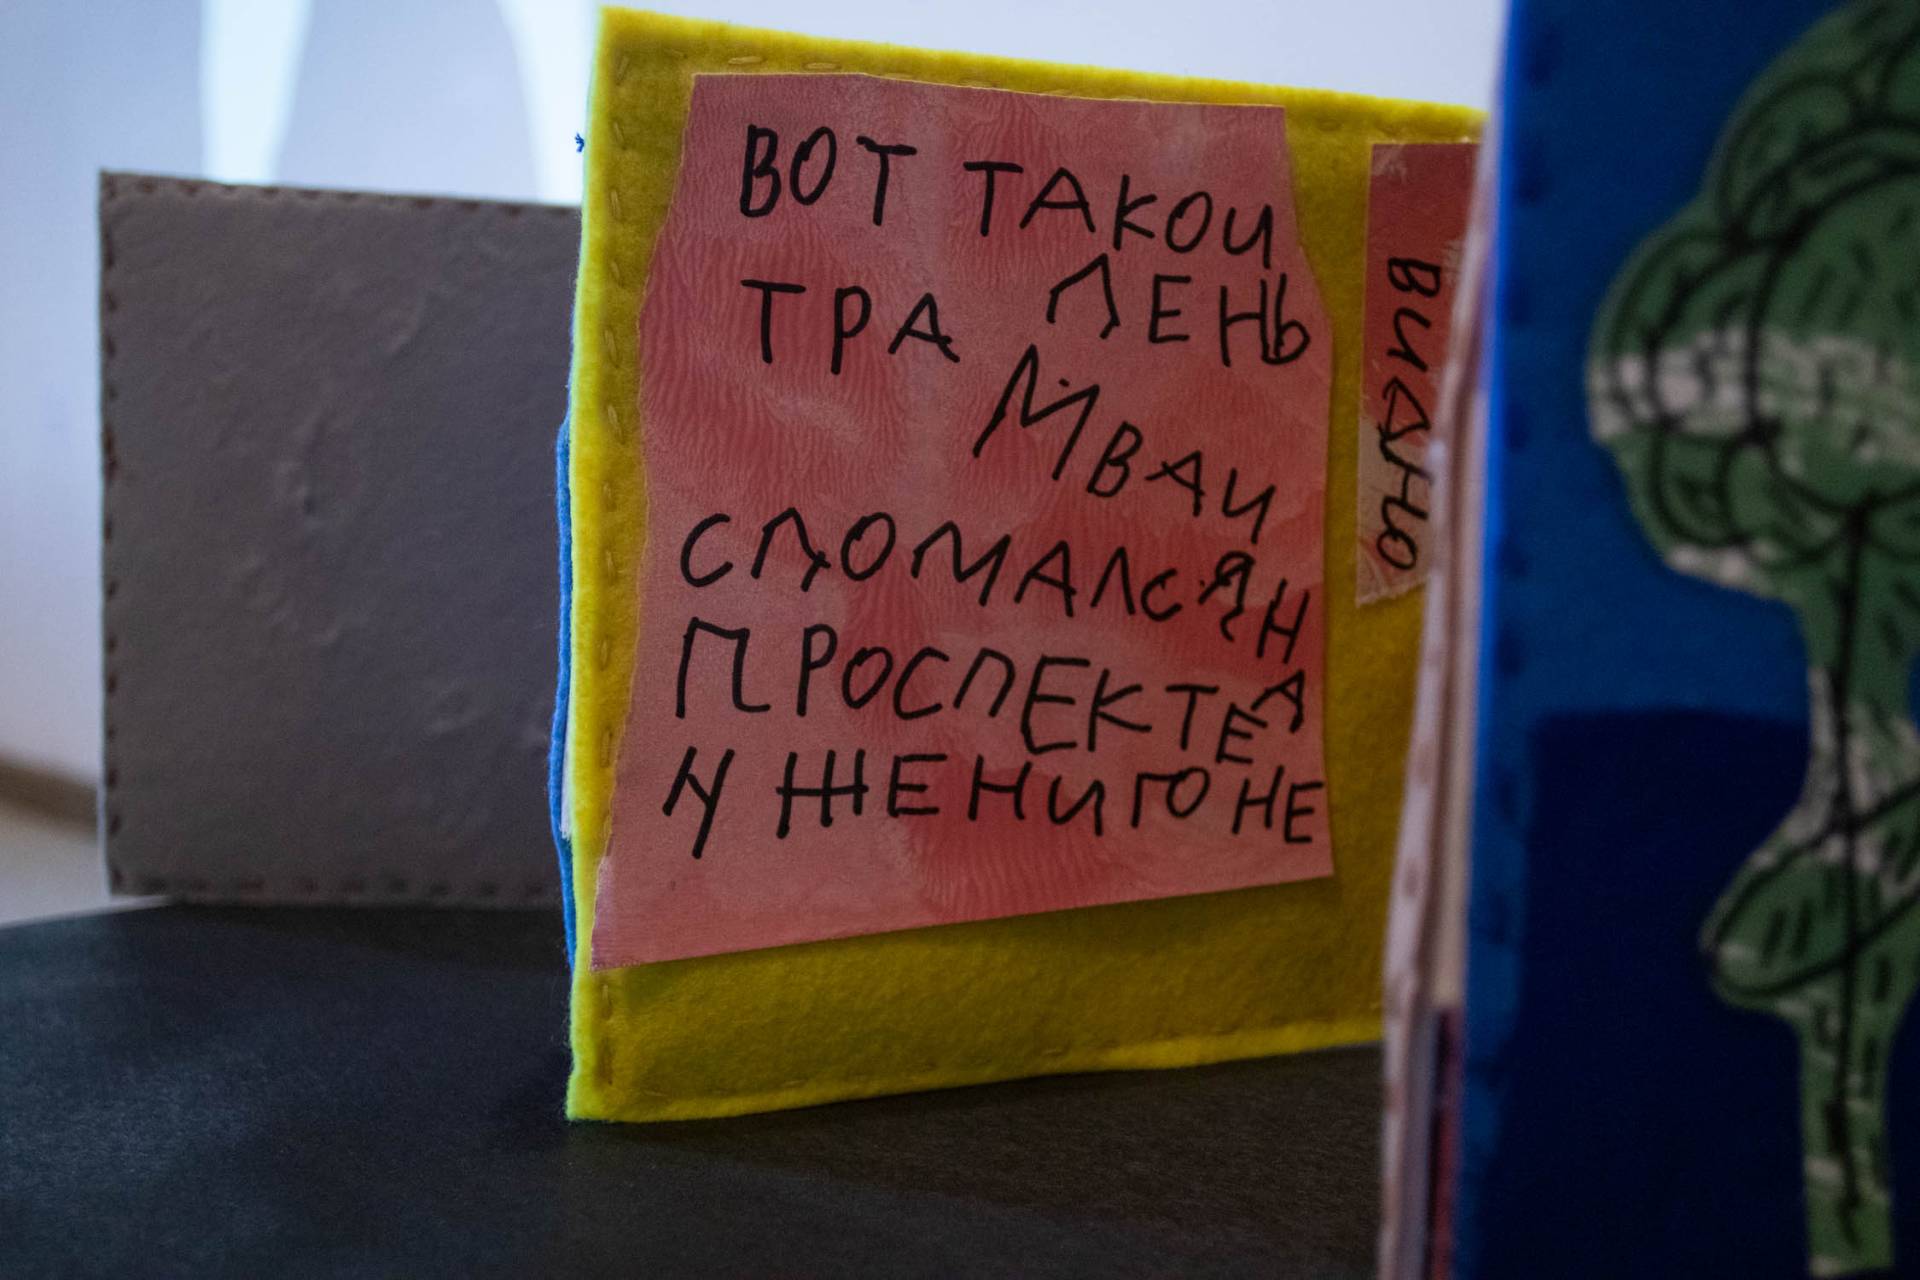 ВОТ ТАКОИ
ТРА ЛЕНЬ
МВАИ
СЛОМАЛСЯ Н
ПРОСПЕКТЕ А
У ЖЕ НИГО НЕ
ВИДНО